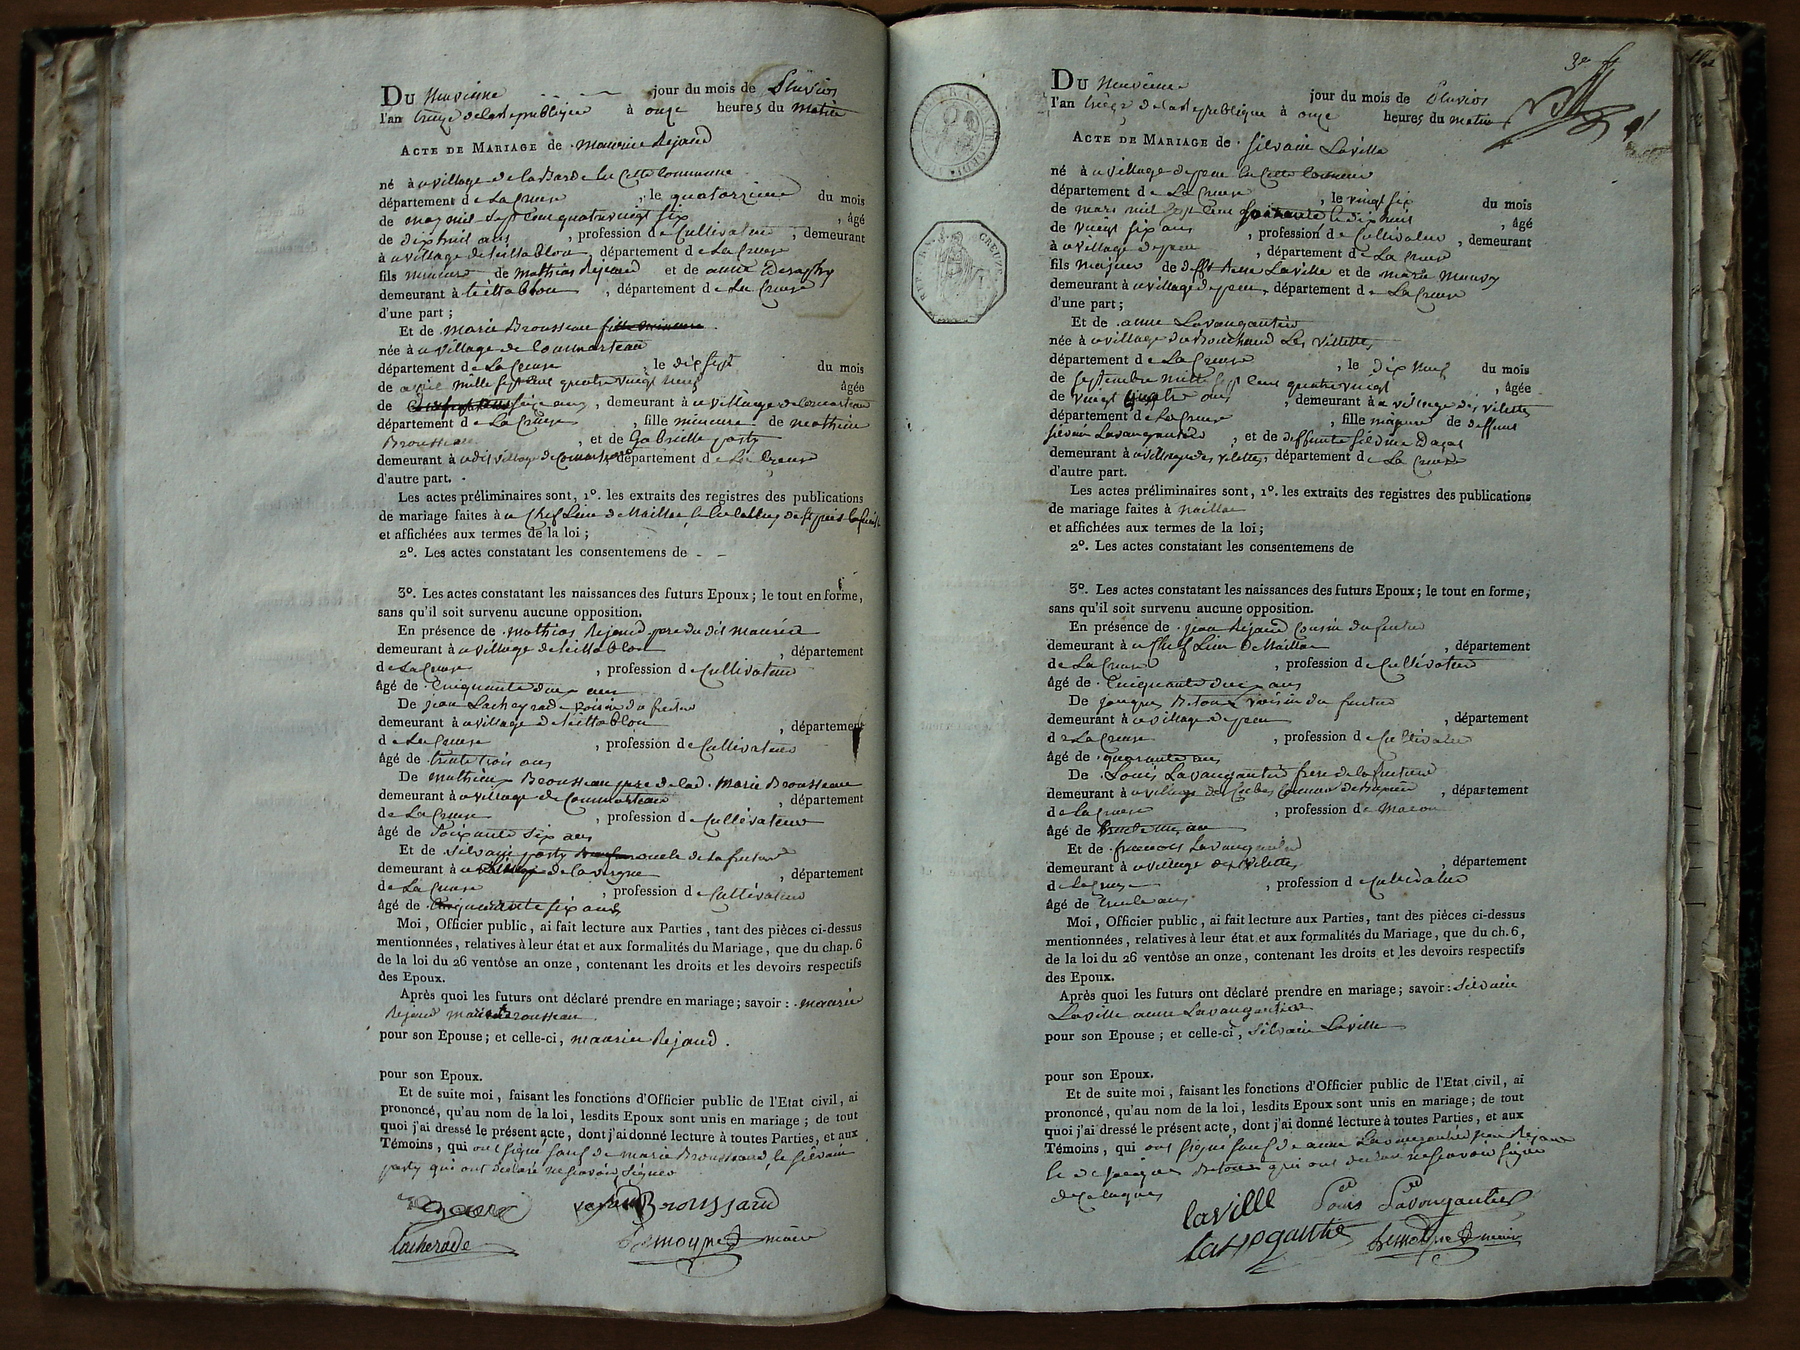 DU Neuvieme jour du mois de Pluvios
l'an treize de la republique à onze heures du matin
ACTE DE MARIAGE de Maurice Rejaud
né à u village de la Barde de Cette Commune
département de La Creuse , le quatorzieme du mois
de may mil sept cent quatrevingt six , âgé
de dixhuit ans , profession de Cultivateur , demeurant
à u village de , département de La Creuse
fils mineur de Mathias Rejaud et de anne
demeurant à , département de La Creuse
d'une part ;
Et de Marie Brousseau
née à u village de
département de La Creuse , le dix sept du mois
de avril mille sept cent quatre vingt neuf âgée
de seize ans , demeurant à u village de
département de La Creuse , fille mineure de mathieu
Brousseau , et de Gabrielle party
demeurant à u dit village de département de La Creuse
d'autre part.
Les actes préliminaires sont, 1º. les extraits des registres des publications
de mariage faites à u Chef Lieu de Naillat
et affichées aux termes de la loi ;
2º. Les actes constatant les consentemens de - -
3º. Les actes constatant les naissances des futurs Epoux ; le tout en forme,
sans qu'il soit survenu aucune opposition.
En présence de mathias Rejaud pere du dit maurice
demeurant à u village de , département
de La Creuse , profession de Cultivateur
âgé de Cinquante deux ans
De jean Lacheyrade voisin du futur
demeurant à u village de , département
de La Creuse , profession de Cultivateur
âgé de trente trois ans
De mathieu Brousseau pere de lad. Marie Brousseau
demeurant à u village de , département
de La Creuse , profession de Cultivateur
âgé de Soixante Six ans
Et de Silvain party oncle de la future
demeurant à u village de Lavergne , département
de La Creuse , profession de Cultivateur
âgé de six ans
Moi, Officier public, ai fait lecture aux Parties, tant des pièces ci-dessus
mentionnées, relatives à leur état et aux formalités du Mariage, que du chap. 6
de la loi du 26 ventôse an onze, contenant les droits et les devoirs respectifs
des Epoux.
Après quoi les futurs ont déclaré prendre en mariage ; savoir : maurice
Rejaud marie Brousseau
pour son Epouse ; et celle-ci, maurice Rejaud .
pour son Epoux.
Et de suite moi, faisant les fonctions d'Officier public de l'Etat civil, ai
prononcé, qu'au nom de la loi, lesdits Epoux sont unis en mariage ; de tout
quoi j'ai dressé le présent acte, dont j'ai donné lecture à toutes Parties, et aux
Témoins, qui ont signé sauf de marie Brousseaud, le Silvain
party qui ont déclaré ne scavoir Signer
Broussaud
Lacherade maire
3e
DU Neuvieme jour du mois de Pluvios
l'an treize de la Republique à onze heures du matin
ACTE DE MARIAGE de Silvain Laville
né à u village de de Cette Commune
département de La Creuse , le vingt six du mois
de mars mil Sept Cent Soixante dix huit , âgé
de vingt six ans , profession de Cultivateur , demeurant
à u village de , département de La Creuse
fils majeur de Laville et de marie
demeurant à u village de , département de La Creuse
d'une part ;
Et de anne Lavaugautier
née à u village du Bouchaud Les Villettes
département de La Creuse , le dix neuf du mois
de Septembre mille Sept Cent quatre vingt , âgée
de vingt quatre ans , demeurant à u village des vilettes
département de La Creuse , fille majeure de deffunt
Silvain Lavaugautier , et de deffunte Silvine
demeurant à u village des vilettes, département de La Creuse
d'autre part.
Les actes préliminaires sont, 1º. les extraits des registres des publications
de mariage faites à naillac
et affichées aux termes de la loi ;
2º. Les actes constatant les consentemens de
3º. Les actes constatant les naissances des futurs Epoux ; le tout en forme,
sans qu'il soit survenu aucune opposition.
En présence de jean Rejaud Cousin du futur
demeurant à u Chef Lieu de Naillac , département
de La Creuse , profession de Cultivateur
âgé de Cinquante deux ans
De jacques voisin du futur
demeurant à u village de , département
de La Creuse , profession de Cultivateur
âgé de quarante ans
De Louis Lavaugautier frere de la future
demeurant à u village des Commune de , département
de la Creuse , profession de Macon
âgé de
Et de francois Lavaugautier
demeurant à u village des vilettes , département
de la Creuse , profession de Cultivateur
âgé de trente ans
Moi, Officier public, ai fait lecture aux Parties, tant des pièces ci-dessus
mentionnées, relatives à leur état et aux formalités du Mariage, que du ch. 6,
de la loi du 26 ventôse an onze, contenant les droits et les devoirs respectifs
des Epoux.
Après quoi les futurs ont déclaré prendre en mariage ; savoir : Silvain
Laville anne Lavaugautier
pour son Epouse ; et celle-ci, Silvain Laville
pour son Epoux.
Et de suite moi, faisant les fonctions d'Officier public de l'Etat civil, ai
prononcé, qu'au nom de la loi, lesdits Epoux sont unis en mariage ; de tout
quoi j'ai dressé le présent acte, dont j'ai donné lecture à toutes Parties, et aux
Témoins, qui ont signé sauf de anne Lavaugautier jean Rejaud
le de jacques qui ont declare ne scavoir signer
laville Louis Lavougautier
lavogautie maire